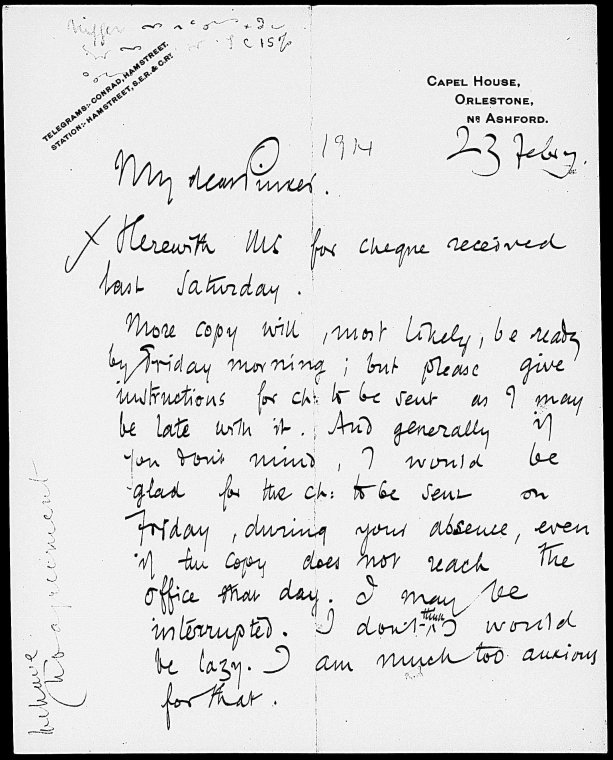 TELEGRAMS:- CONRAD, HAMSTREET.
STATION:- HAMSTREET, S.E.R. & C.RY.
CAPEL HOUSE,
ORLESTONE,
NR ASHFORD.
1914 23 Febry.
My dear Pinker.
X Herewith MS for cheque received
last Saturday.
More copy will, most likely, be ready
by Friday morning; but please give
instructions for ch: to be sent as I may
be late with it. And generally if
you don't mind, I would be
glad for the ch: to be sent on
Friday, during your absence, even
if the copy does not reach the
office that day. I may be
interrupted. I don't think I would
be lazy. I am much too anxious
for that.
no agreement